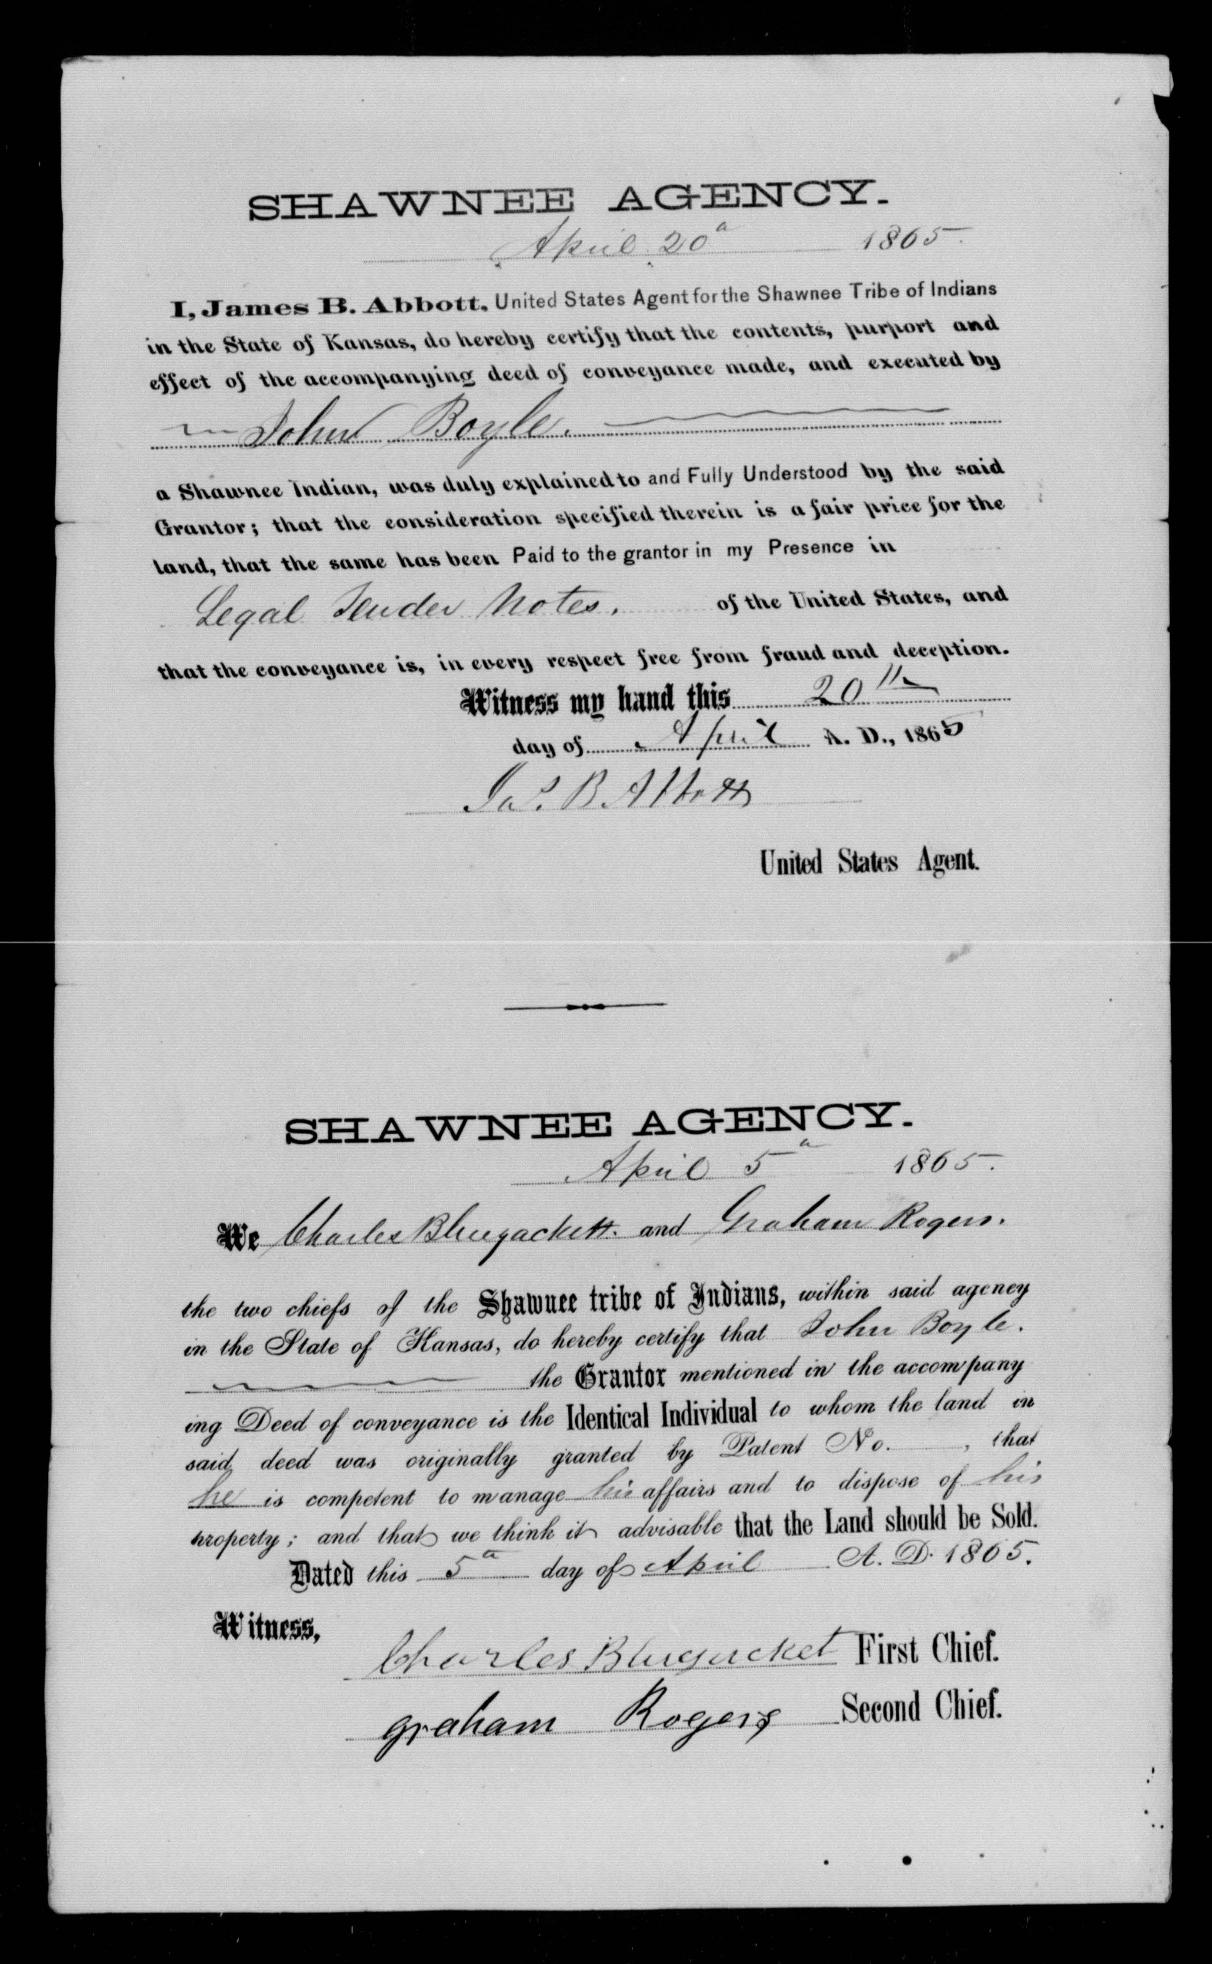 SHAWNEE AGENCY.
April 20th 1865.
I, James B. Abbott, United States Agent for the Shawnee Tribe of Indians
in the State of Kansas, do hereby certify that the contents, purport and
effect of the accompanying deed of conveyance made, and executed by
John Boyle.
a Shawnee Indian, was duly explained to and Fully Understood by the said
Grantor; that the consideration specified therein is a fair price for the
land, that the same has been Paid to the grantor in my Presence in
Legal Tender Notes. of the United States, and
that the conveyance is, in every respect free from fraud and deception.
Witness my hand this 20th
day of April A. D., 1865
Jas. B. Abbott
United States Agent.
SHAWNEE AGENCY.
April 5th 1865.
We Charles Bluejackett. and Graham Rogers.
the two chiefs of the Shawnee tribe of Indians, within said agency
in the State of Kansas, do hereby certify that John Boyle.
the Grantor mentioned in the accompany
ing Deed of conveyance is the Identical Individual to whom the land in
said deed was originally granted by Patent No. , that
he is competent to manage his affairs and to dispose of his
property; and that we think it advisable that the Land should be Sold.
Dated this 5th day of April A. D. 1865.
Witness,
Charles Bluejacket First Chief.
graham Rogers Second Chief.